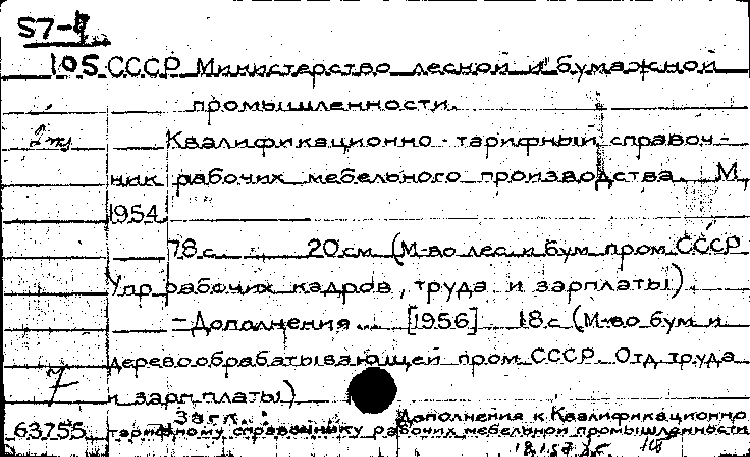 57-
105 СССР Министерство лесной и бумажной
промышленности.
Квалификационно-тарифный справоч-
ник рабочих мебельного производства. М,
1954
78 с. 20 см (М-во лес и бум пром СССР
Упр рабочих кадров, труда и зарплаты)
- Дополнения... [1956] 18 с (М-во бум и
деревообрабатывающей пром СССР. Отд труда
7
и зарплаты)
Загл. Дополнения к Квалификационно
63755 тарифному справочнику рабочих мебельной промышленности